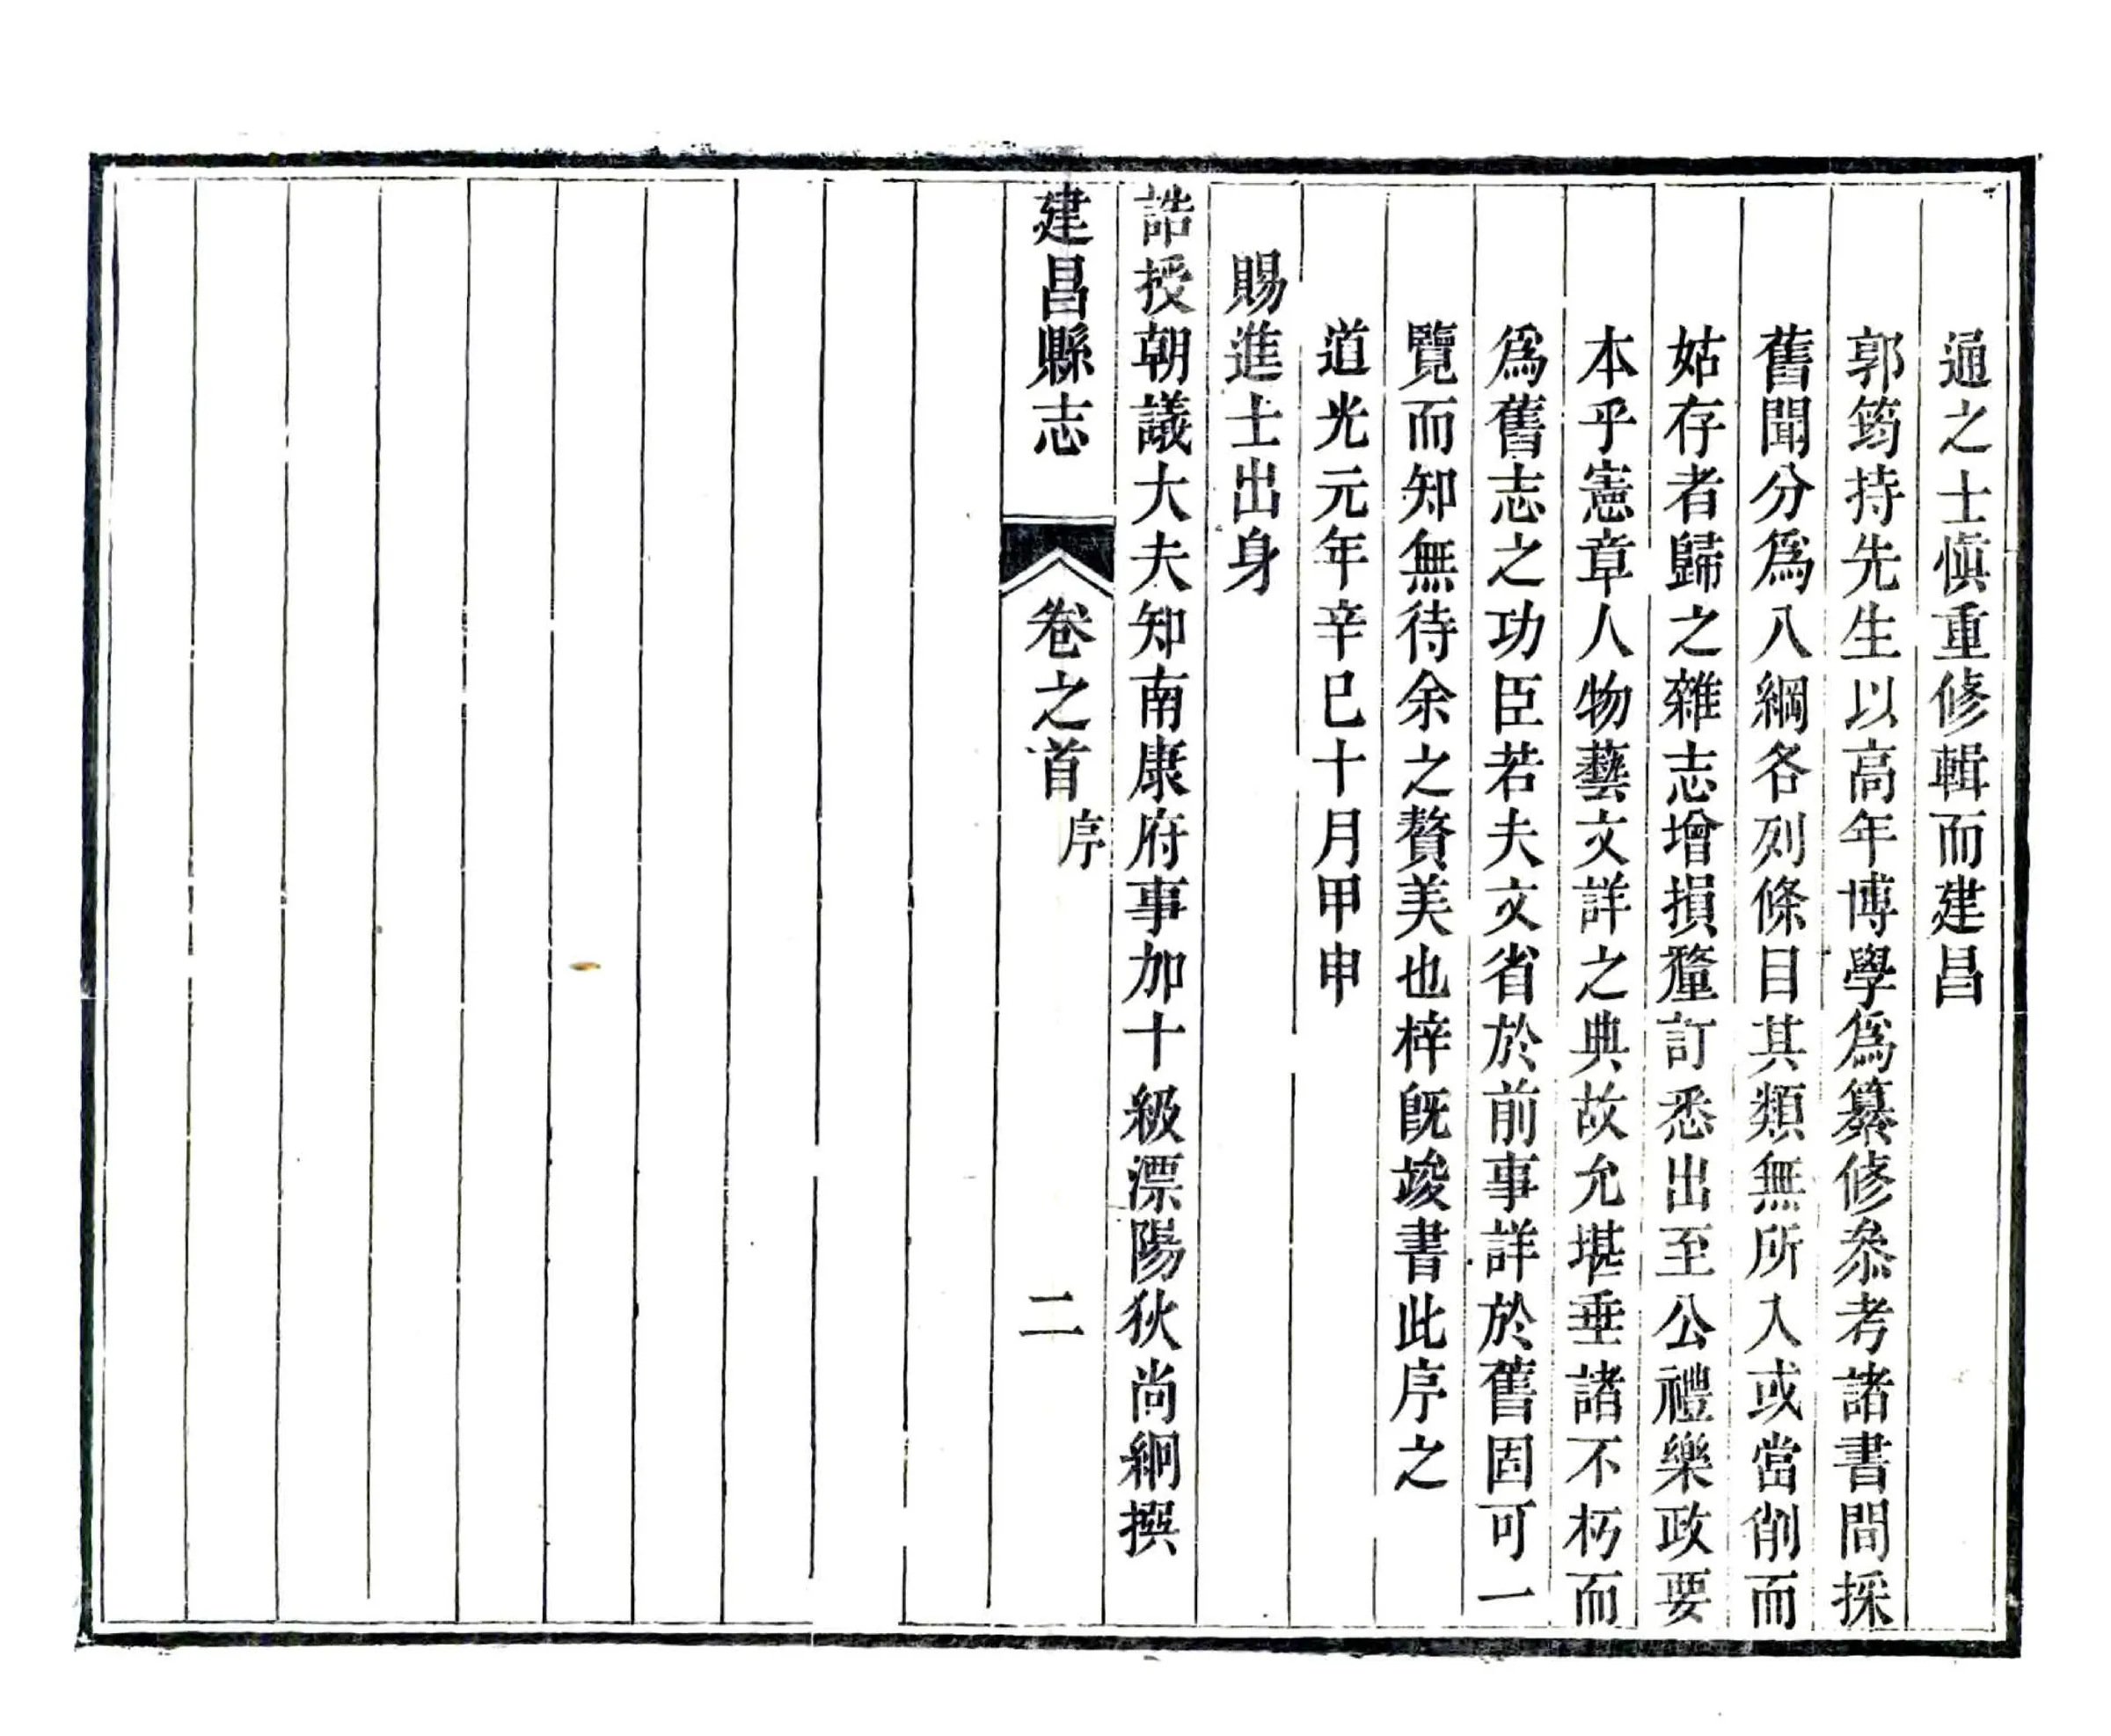 通之士愼重修輯而建昌
郭筠持先生以高年博學爲纂修叅考諸書間採
舊聞分爲八綱各列條目其類無所入或當削而
姑存者歸之雜志增損釐訂悉出至公禮樂政要
本乎憲章人物藝文詳之典故允堪垂諸不朽而
爲舊志之功臣若夫文省於前事詳於舊固可一
覽而知無待余之贅美也梓旣竣書此序之
道光元年辛巳十月甲申
賜進士出身
誥授朝議大夫知南康府事加十級溧陽狄尚絅撰
建昌縣志 卷之首 序 二